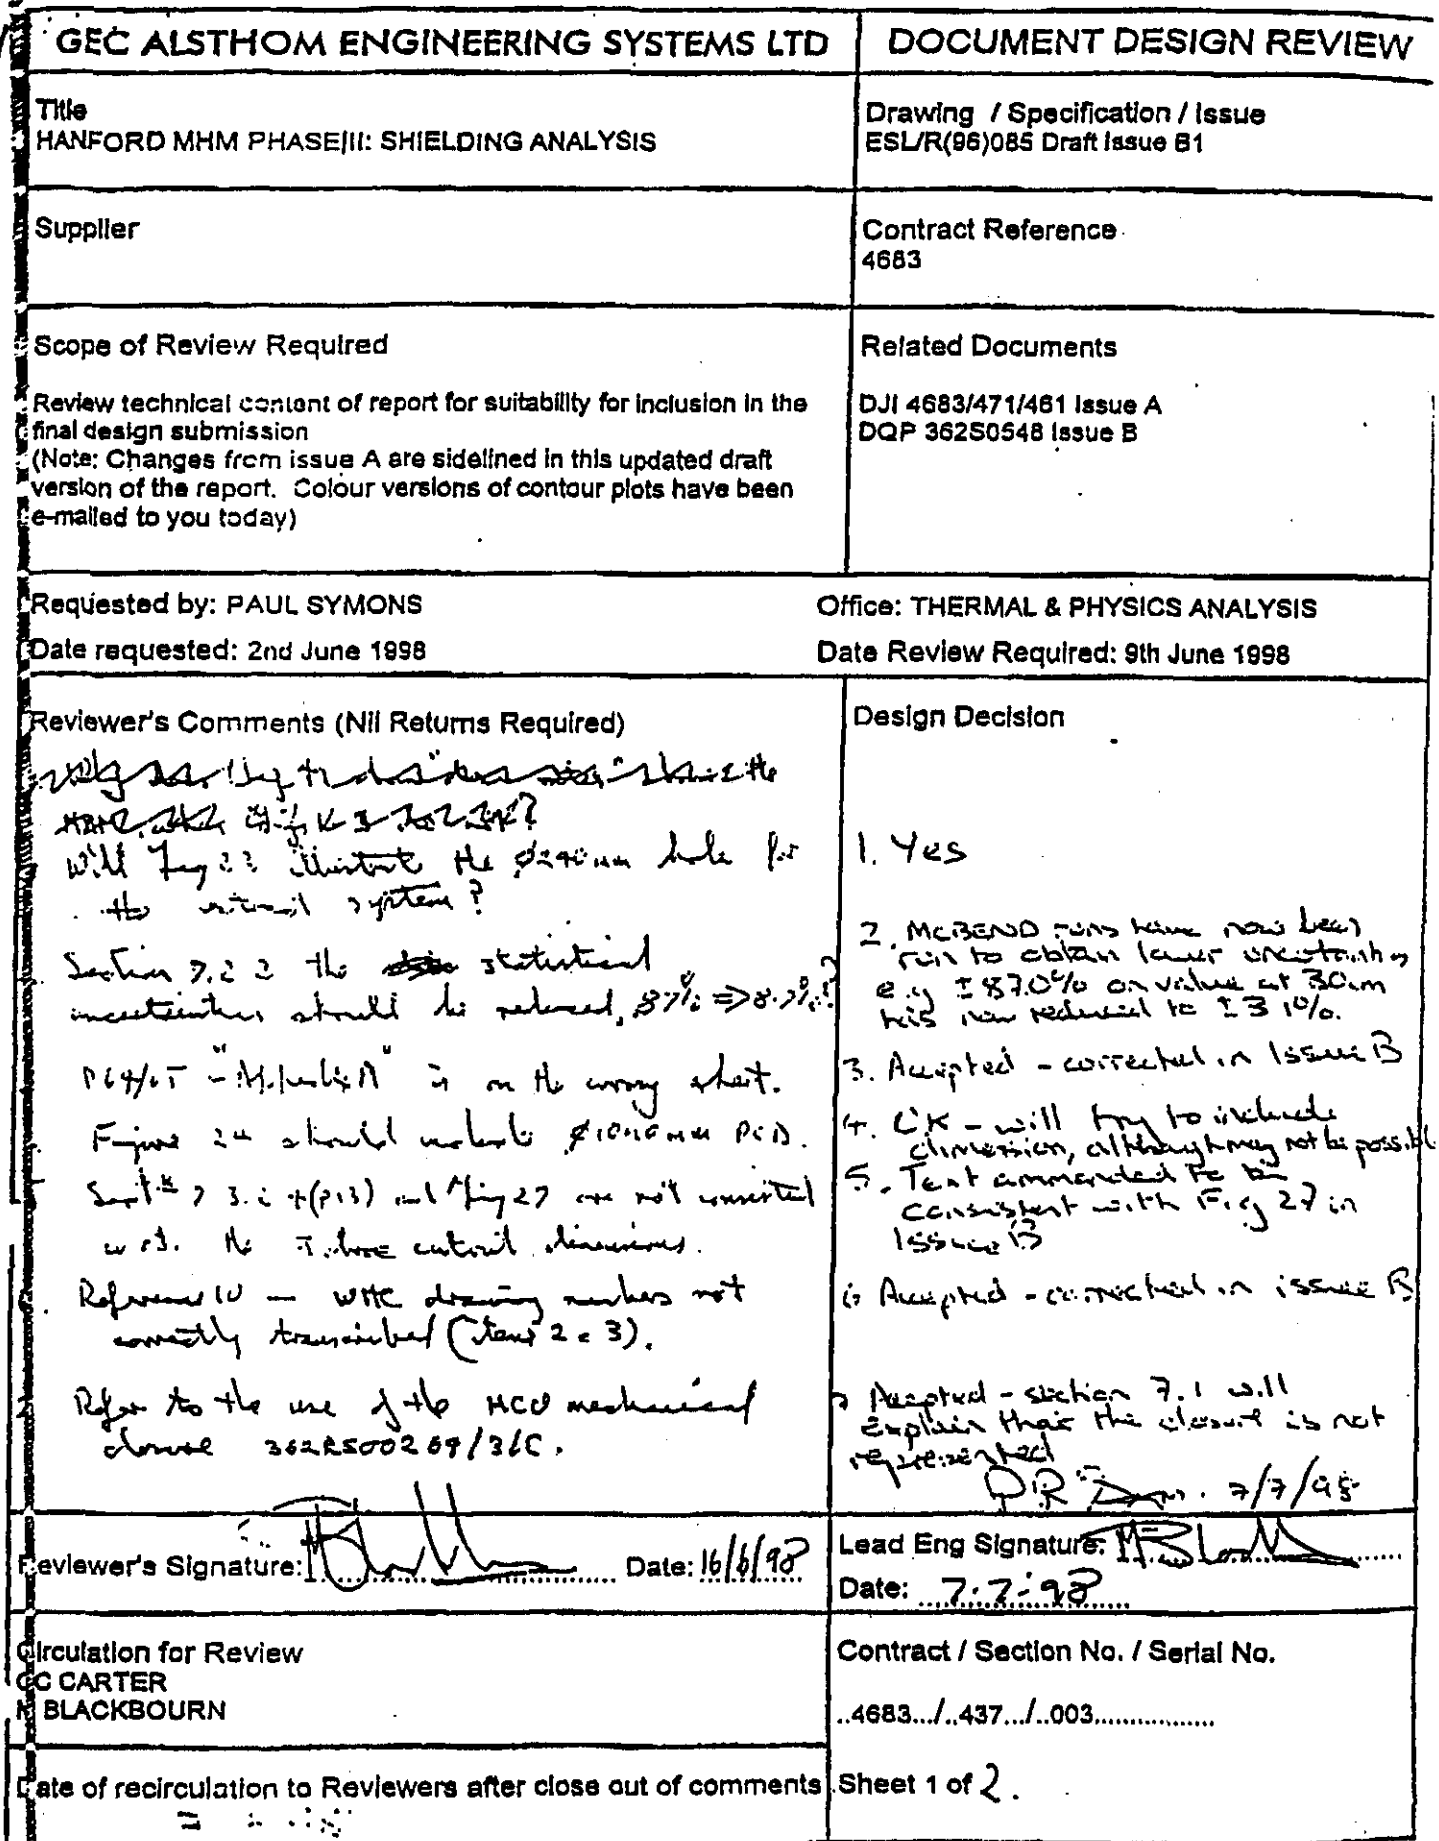 GEC ALSTHOM ENGINEERING SYSTEMS LTD
DOCUMENT DESIGN REVIEW
Title
HANFORD MHM PHASE III: SHIELDING ANALYSIS
Drawing / Specification / Issue
ESL/R(96)085 Draft Issue B1
Supplier
Contract Reference
4683
Scope of Review Required
Review technical content of report for suitability for inclusion in the
final design submission
(Note: Changes from issue A are sidelined in this updated draft
version of the report. Colour versions of contour plots have been
e-mailed to you today)
Related Documents
DJI 4683/471/461 Issue A
DQP 362S0548 Issue B
Requested by: PAUL SYMONS
Office: THERMAL & PHYSICS ANALYSIS
Date requested: 2nd June 1998
Date Review Required: 9th June 1998
Reviewer's Comments (Nil Returns Required)
Will Fig 23 illustrate the hole for
the system?
Section 7.2.2 the statistical
uncertainties should be reduced, 87% => 8.7%?
is on the wrong sheet.
Figure 24 should include PCD.
and Fig 27 are not consistent
w.r.t. the cutout dimensions.
Reference 10 — WHC drawing numbers not
correctly transcribed (items 2 & 3).
Refer to the use of the MCO mechanical
closure
Design Decision
1. Yes
2. MCBEND runs have now been
run to obtain lower uncertainties
e.g ±87.0% on value at 30cm
has now reduced to
3. Accepted - corrected in Issue B
4. OK - will try to include
dimension, although may not be possible
5. Text ammended to be
consistent with Fig 27 in
Issue B
6 Accepted - corrected in issue B
7 Accepted - section 7.1 will
explain that the closure is not
represented
7/7/98
Reviewer's Signature: Date: 16/6/98
Lead Eng Signature:
Date: 7.7.98
Circulation for Review
CARTER
BLACKBOURN
Contract / Section No. / Serial No.
..4683.../..437.../..003.................
Date of recirculation to Reviewers after close out of comments
Sheet 1 of 2.